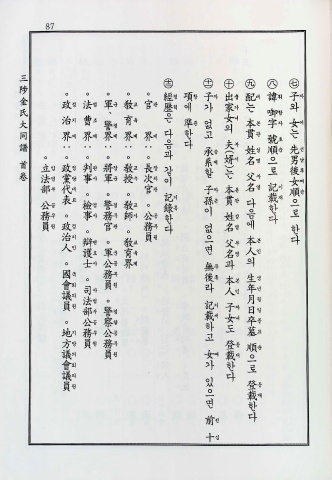 87
三陟金氏大同譜 首卷
㊆ 子와 女는 先男後女順으로 한다
㊇ 諱 啣字 號順으로 記載한다
㊈ 配는 本貫 姓名 父名 다음에 本人의 生年月日卒墓 順으로 登載한다
㊉ 出家女의 夫(壻)는 本貫 姓名 父名과 本人 子女도 登載한다
子가 없고 承系할 子孫이 없으면 無後라 記載하고 女가 있으면 前十
項에 準한다
經歷은 다음과 같이 記錄한다
◦官 界…長次官 ◦公務員
◦敎育界…敎授 ◦敎師 ◦敎育界
◦軍、警界…將軍 ◦警務官 ◦軍公務員 ◦警察公務員
◦法曹界…判事 ◦檢事 ◦辯護士 ◦司法部公務員
◦政治界…政黨代表 ◦政治人 ◦國會議員 ◦地方議會議員
◦立法部 公務員